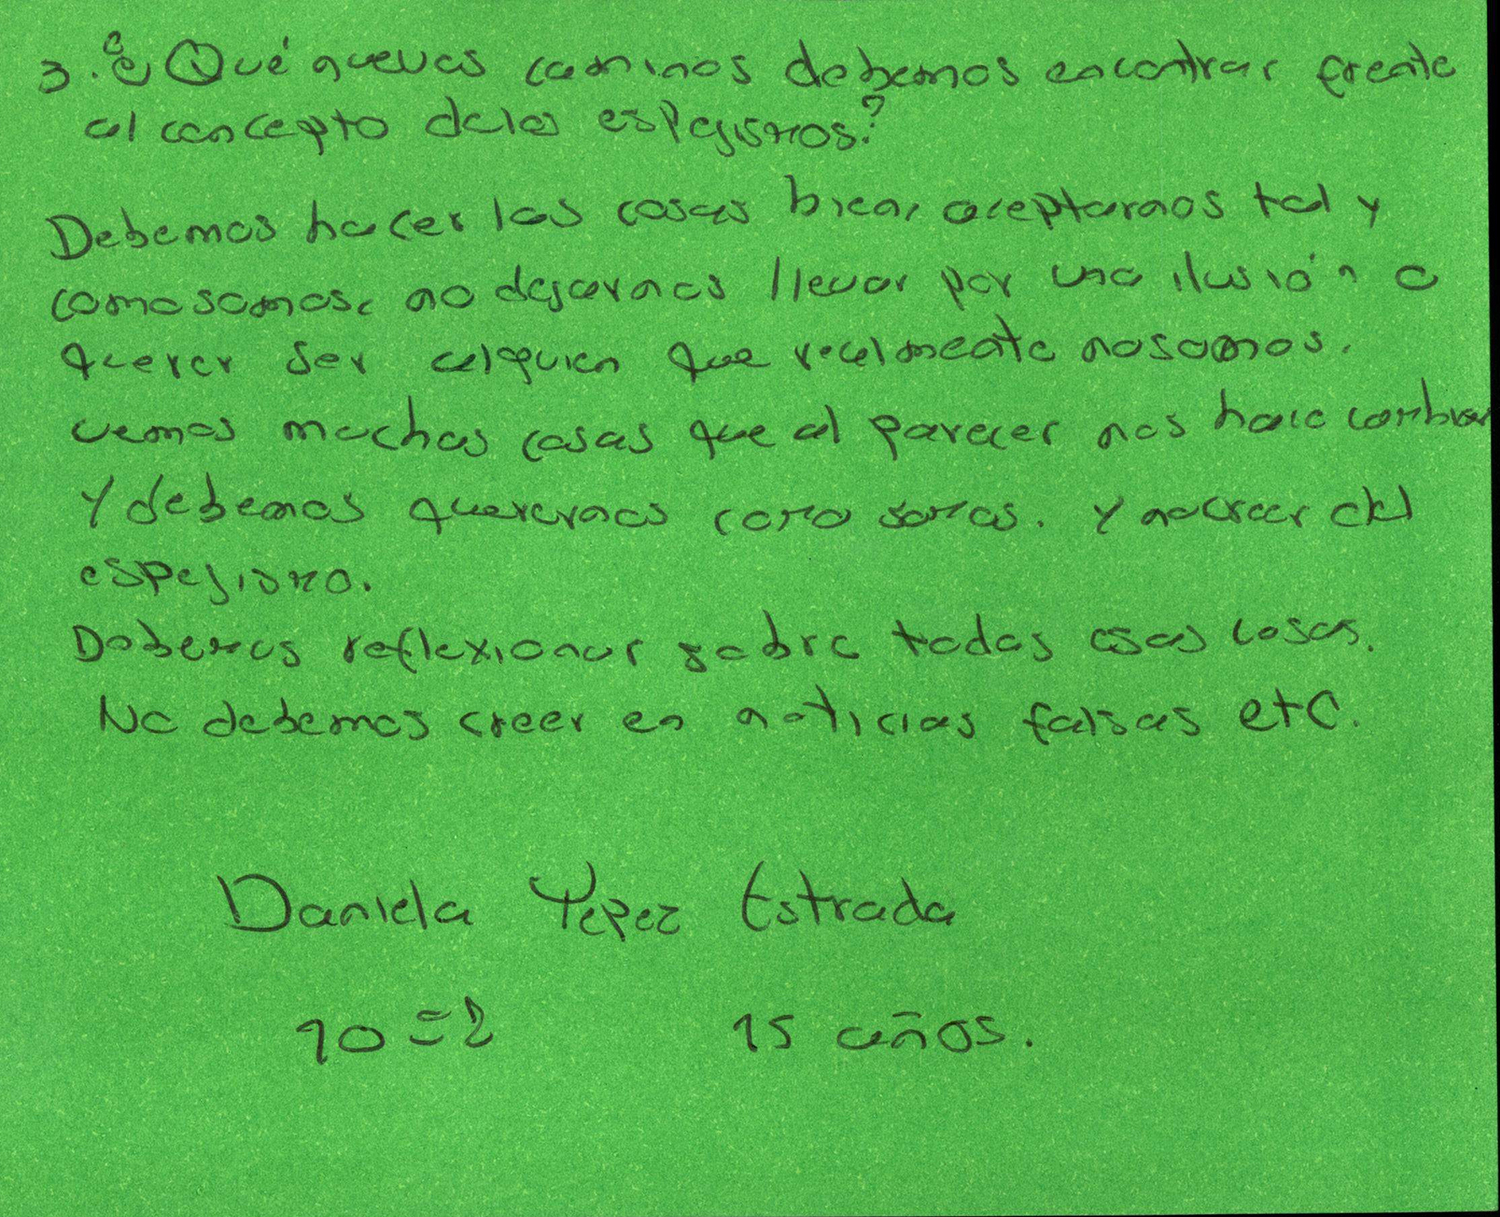 3. ¿Qué nuevos caminos debemos encontrar frente
al concepto de los espejismos?
Debemos hacer las cosas bien, aceptarnos tal y
como somos, no dejarnos llevar por una ilusión o
querer ser alguien que realmente no somos.
vemos muchas cosas que al parecer nos hace cambiar
Y debemos querernos como somos. Y no creer del
espejismo.
Debemos reflexionar sobre todas esas cosas.
No debemos creer en noticias falsas etc.
Daniela Yepez Estrada
10=2 15 años.